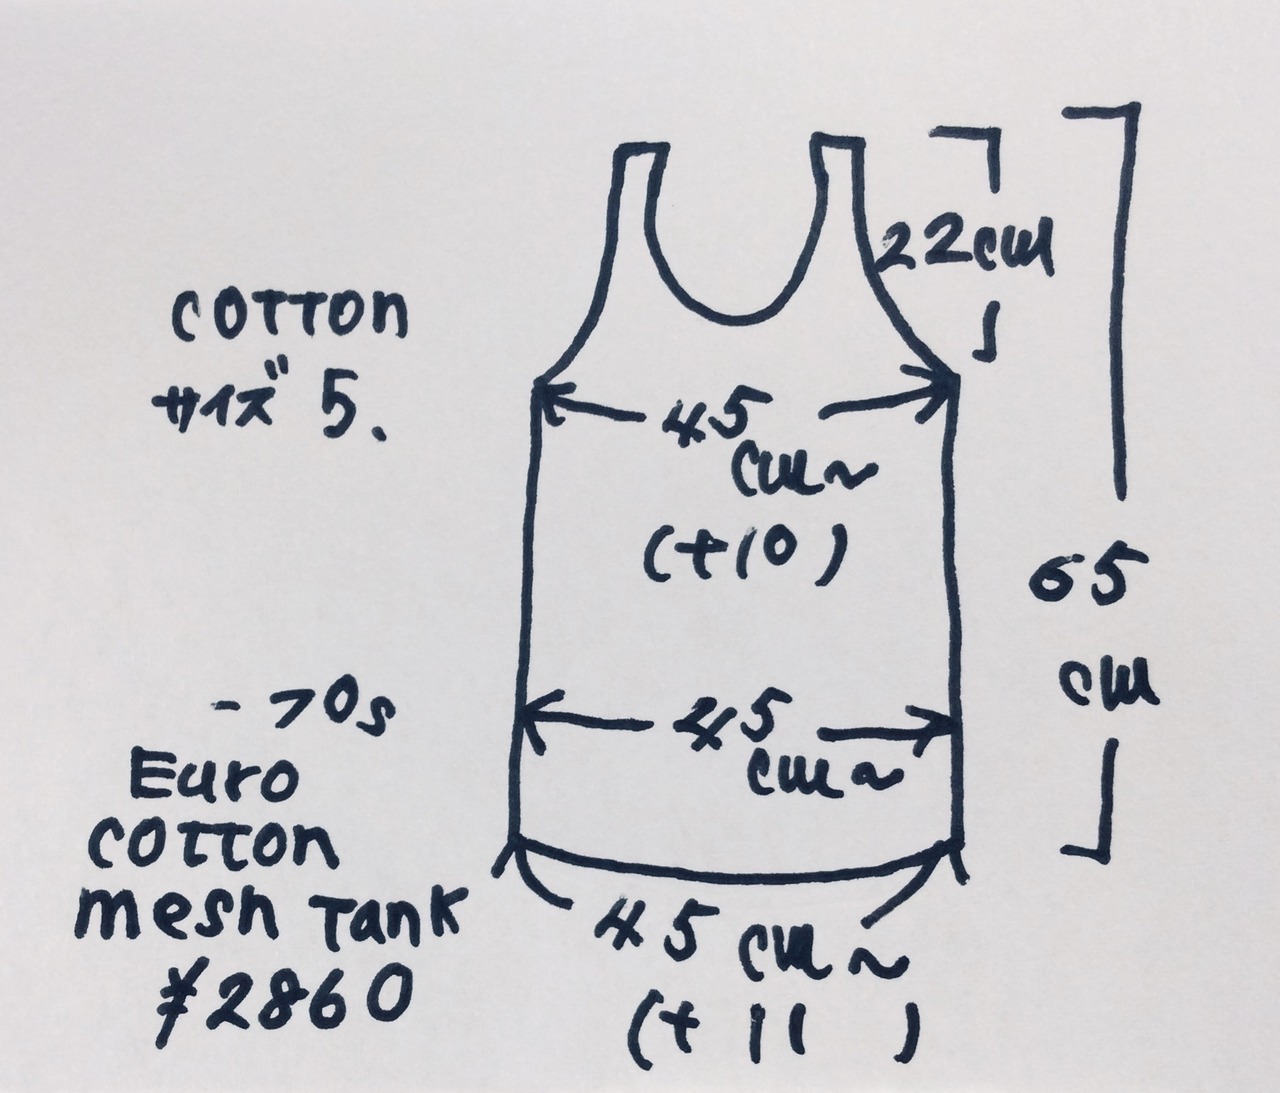 COTTON
サイズ 5.
-70s
Euro
COTTON
mesh Tank
¥2860
22cm
65
cm
45
cm~
(+10)
45
cm~
45 cm~
(+11)